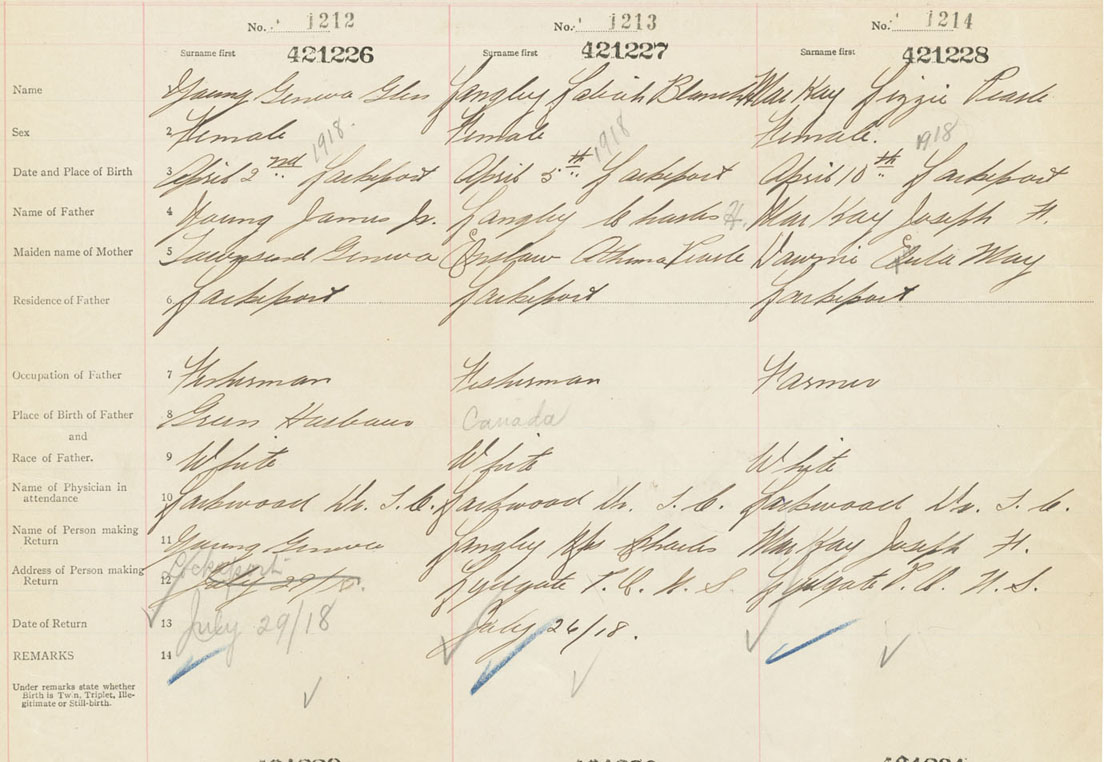 No. 1212 No. 1213 No. 1214
Surname first 421226 Surname first 421227 Surname first 421228
Name Young Geneva Glen Langley Blanch MacKay Lizzie Pearle
Sex 2 Female Female Female.
1918. 1918 1918
Date and Place of Birth 3 April 2nd Lockeport April 5th Lockeport April 10th Lockeport
Name of Father 4 Young James Jr. Langley Charles H. MacKay Joseph H.
Maiden name of Mother 5 Townsend Geneva Enslow Pearle Eula May
Residence of Father 6 Lockeport Lockeport Lockeport
Occupation of Father 7 Fisherman Fisherman Farmer
Place of Birth of Father 8 Green Harbour Canada
and
Race of Father. 9 White White White
Name of Physician in
attendance 10 Lockwood Dr. T. C. Lockwood Dr. T. C. Lockwood Dr. T. C.
Name of Person making
Return 11 Young Geneva Langley Mrs Charles MacKay Joseph H.
Lockeport
Address of Person making
Return 12 July 29/18. Lydgate P. O. N. S. Lydgate P. O. N. S.
Date of Return 13 July 29/18 July 26/18.
REMARKS 14
Under remarks state whether
Birth is Twin, Triplet, Ille-
gitimate or Still-birth.